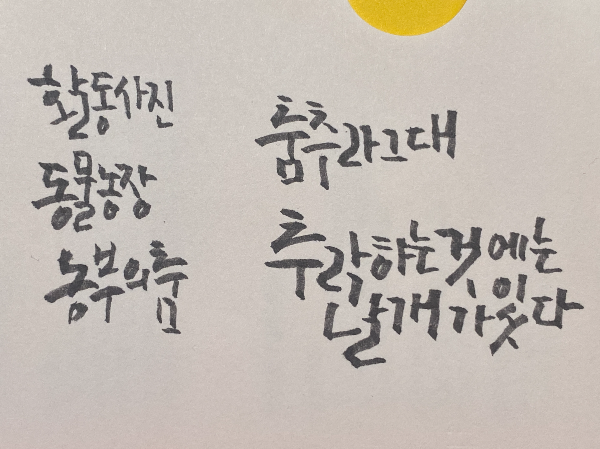 활동사진
동물농장
농부의춤
춤추라그대
추락하는것에는
날개가있다